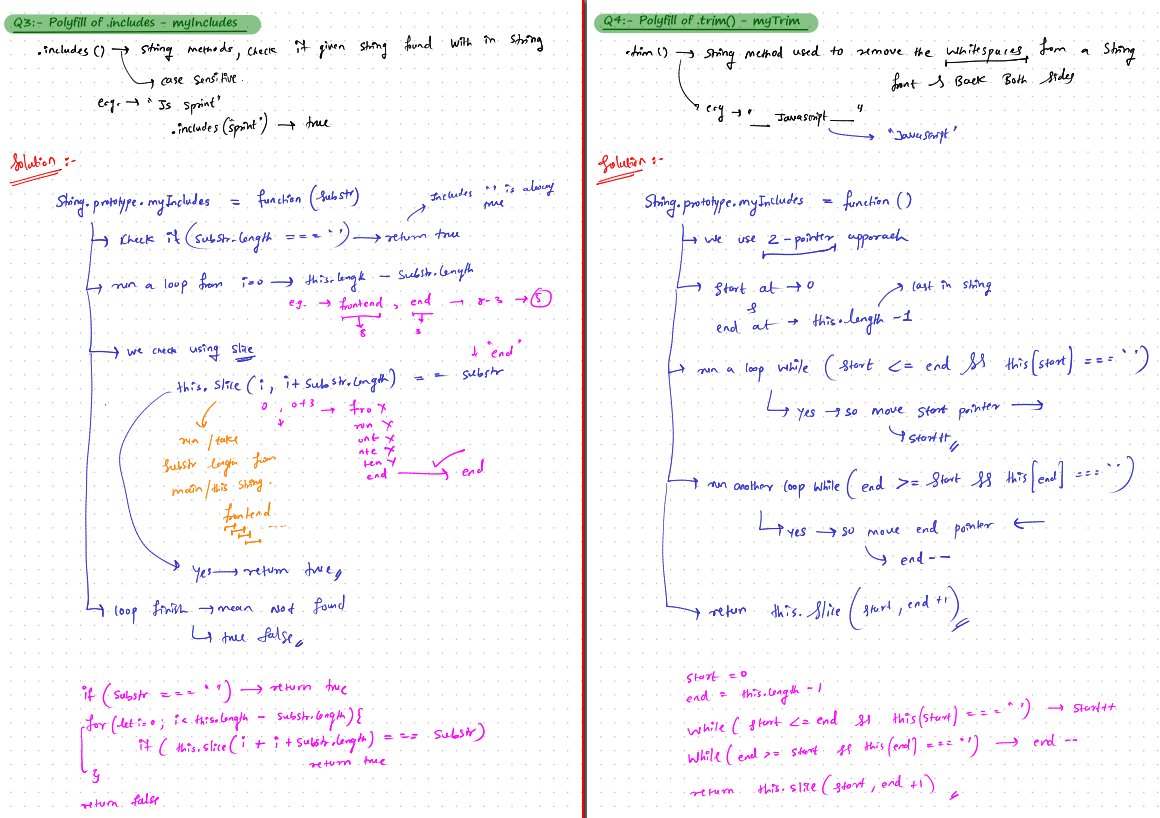 Q3:- Polyfill of .includes - myIncludes
.includes() → string methods, check if given string found with in string
→ case sensitive.
e.g. → "Js sprint"
.includes("sprint") → true
Solution :-
String.prototype.myIncludes = function (substr)
includes '' is always true
→ check if (substr.length === '') → return true
→ run a loop from i=0 → this.length - substr.length
e.g. → frontend, end → 8-3 → 5
8 3
→ we check using slice
↓ "end"
this.slice(i, i+substr.length) === substr
0, 0+3 → fro x
run / take substr length from main/this string.
ron x
ont x
nte x
ten x
end → end
frontend ....
Yes → return true
→ loop finish → mean not found
↳ true false
if (substr === '') → return true
for (let i=0; i< this.length - substr.length){
if (this.slice(i + i+substr.length) === substr)
return true
}
return false
Q4:- Polyfill of .trim() - myTrim
.trim() → string method used to remove the whitespaces from a string
front & Back Both sides
e.g → "__ Javascript ___"
→ "Javascript"
Solution :-
String.prototype.myIncludes = function ()
→ we use 2-pointer apporach
→ start at → 0
&
→ last in string
end at → this.length -1
→ run a loop while (start <= end && this[start] === '')
↳ yes → so move start pointer →
↳ start++
→ run another loop while (end >= start && this[end] === '')
↳ yes → so move end pointer ←
↳ end--
→ return this.slice(start, end+1)
start = 0
end = this.length - 1
while (start <= end && this(start) === '') → start++
while (end >= start && this(end) === '') → end --
return this.slice(start, end +1)